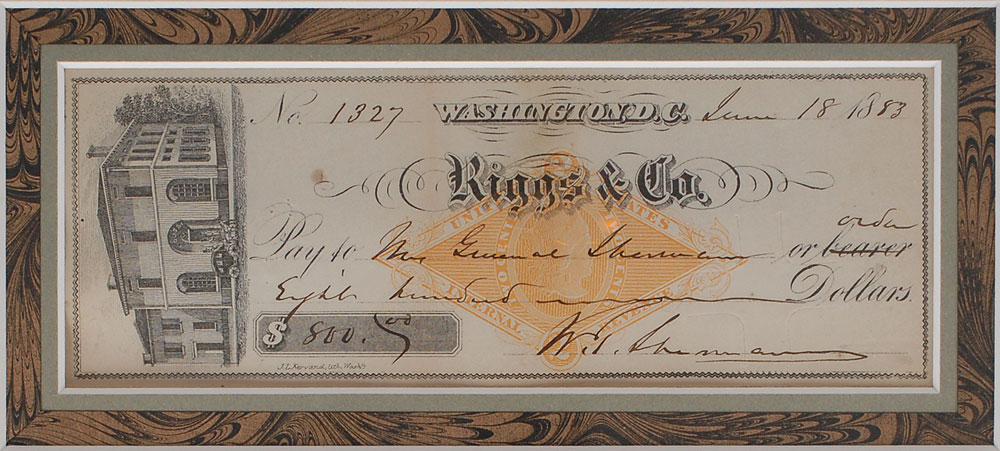 No. 1327 WASHINGTON, D.C. June 18 1883
Riggs & Co.
order
Pay to Mrs General Sherman or bearer
Eight hundred Dollars.
$ 800.00
W. T. Sherman
UNITED STATES
INTERNAL REVENUE
J.L. Kervand, Lith. Wash'n